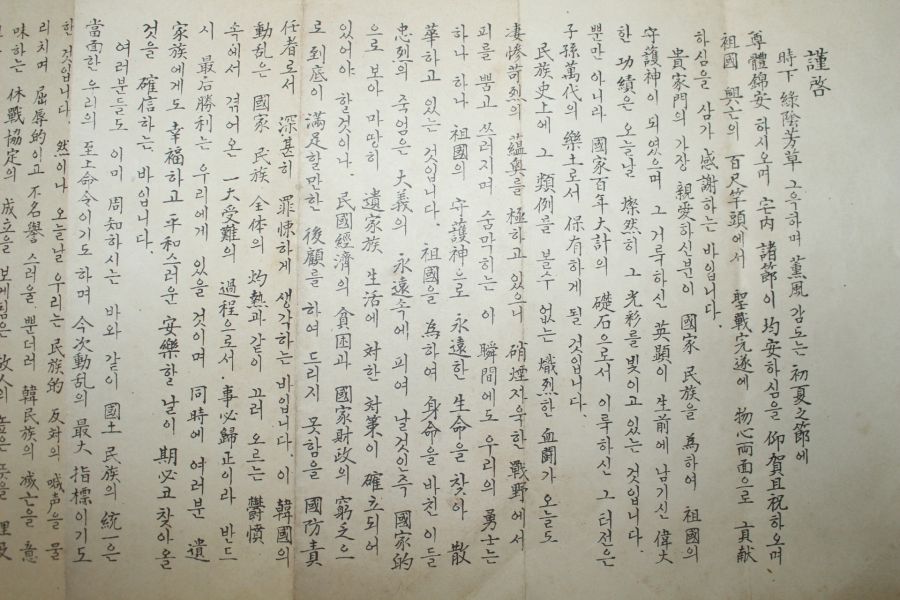 謹啓
時下 綠陰芳草 그윽하며 薰風 감도는 初夏之節에
尊體錦安 하시오며 宅內 諸節이 均安하심을 仰 賀且祝하오며、
祖國 興亡의 百尺竿頭에서 聖戰完遂에 物心兩面으로 貢献
하심을 삼가 感謝하는 바입니다.
貴家門의 가장 親愛하신분이 國家 民族을 為하여 祖國의
守護神이 되였으며 그 거룩하신 英顯이 生前에 남기신 偉大
한 功績은 오늘날 燦然히 그 光彩를 빛이고 있는 것입니다.
뿐만 아니라 國家百年大計의 礎石으로서 이룩하신 그 터전은
子孫萬代의 樂土로서 保有하게 될 것입니다.
民族史上에 그 類例를 볼수 없는 熾烈한 血闘가 오늘도
凄慘苛烈의 蘊奧를 極하고 있으니 硝煙자욱한 戰野에서
피를 뿜고 쓰러지며 숨막히는 이 瞬間에도 우리의 勇士는
하나 하나 祖國의 守護神으로 永遠한 生命을 찾아 散
華하고 있는 것입니다. 祖國을 為하여 身命을 바친 이들
忠烈의 죽엄은 大義의 永遠속에 피여 날것인즉 國家的
으로 보아 마땅히 遺家族 生活에 対한 対策이 確立되어
있어야 하것이나 民國經濟의 貧困과 國家財政의 窮乏으
로 到底이 滿足할만한 後顧를 하여 드리지 못함을 國防責
任者로서 深甚히 罪悚하게 생각하는 바입니다. 이 韓國의
動亂은 國家 民族 全体의 灼熱과같이 끄러 오르는 鬱憤
속에서 겪어온 一大受難의 過程으로서 事必歸正이라 반드
시 最后勝利는 우리에게 있을 것이며 同時에 여러분 遺
家族에게도 幸福하고 平和스러운 安樂할 날이 期必코 찾아올
것을 確信하는 바입니다.
여러분들도 이미 周知하시는 바와 같이 國土 民族의 統一은
當面한 우리의 至上命令이기도 하며 今次動乱의 最大 指標이기도
한 것입니다. 然이나 오늘날 우리는 民族的 反対의 喊声을 물
리치며 屈辱的이고 不名譽 스러울 뿐더러 韓民族의 減亡을 意
味하는 休戰協定의 成立을 보게됨은